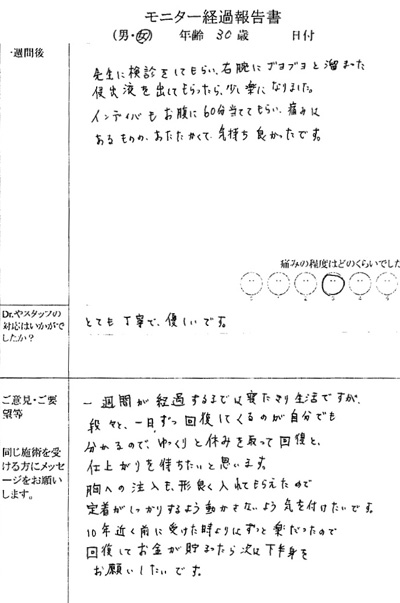 モニター経過報告書
(男・女) 年齢 30 歳 日付
週間後
先生に検診をしてもらい、右腕にブヨブヨと溜まった
侵出液を出してもらったら、少し楽になりました。
インディバもお腹に60分当ててもらい、痛みは
あるものの、あたたかくて、気持ち良かったです。
痛みの程度はどのくらいでした
Dr.やスタッフの対応はいかがでしたか?
とても丁寧で、優しいです。
ご意見・ご要望等
同じ施術を受ける方にメッセージをお願いします。
一週間が経過するまでは寝たきり生活ですが、
段々と、一日ずつ回復してくるのが自分でも
分かるので、ゆっくりと休みを取って回復と、
仕上がりを待ちたいと思います。
胸への注入も、形良く入れてもらえたので
定着がしっかりするよう動かさないよう気を付けたいです。
10年近く前に受けた時よりはずっと楽だったので
回復してお金が貯まったら次は下半身を
お願いしたいです。